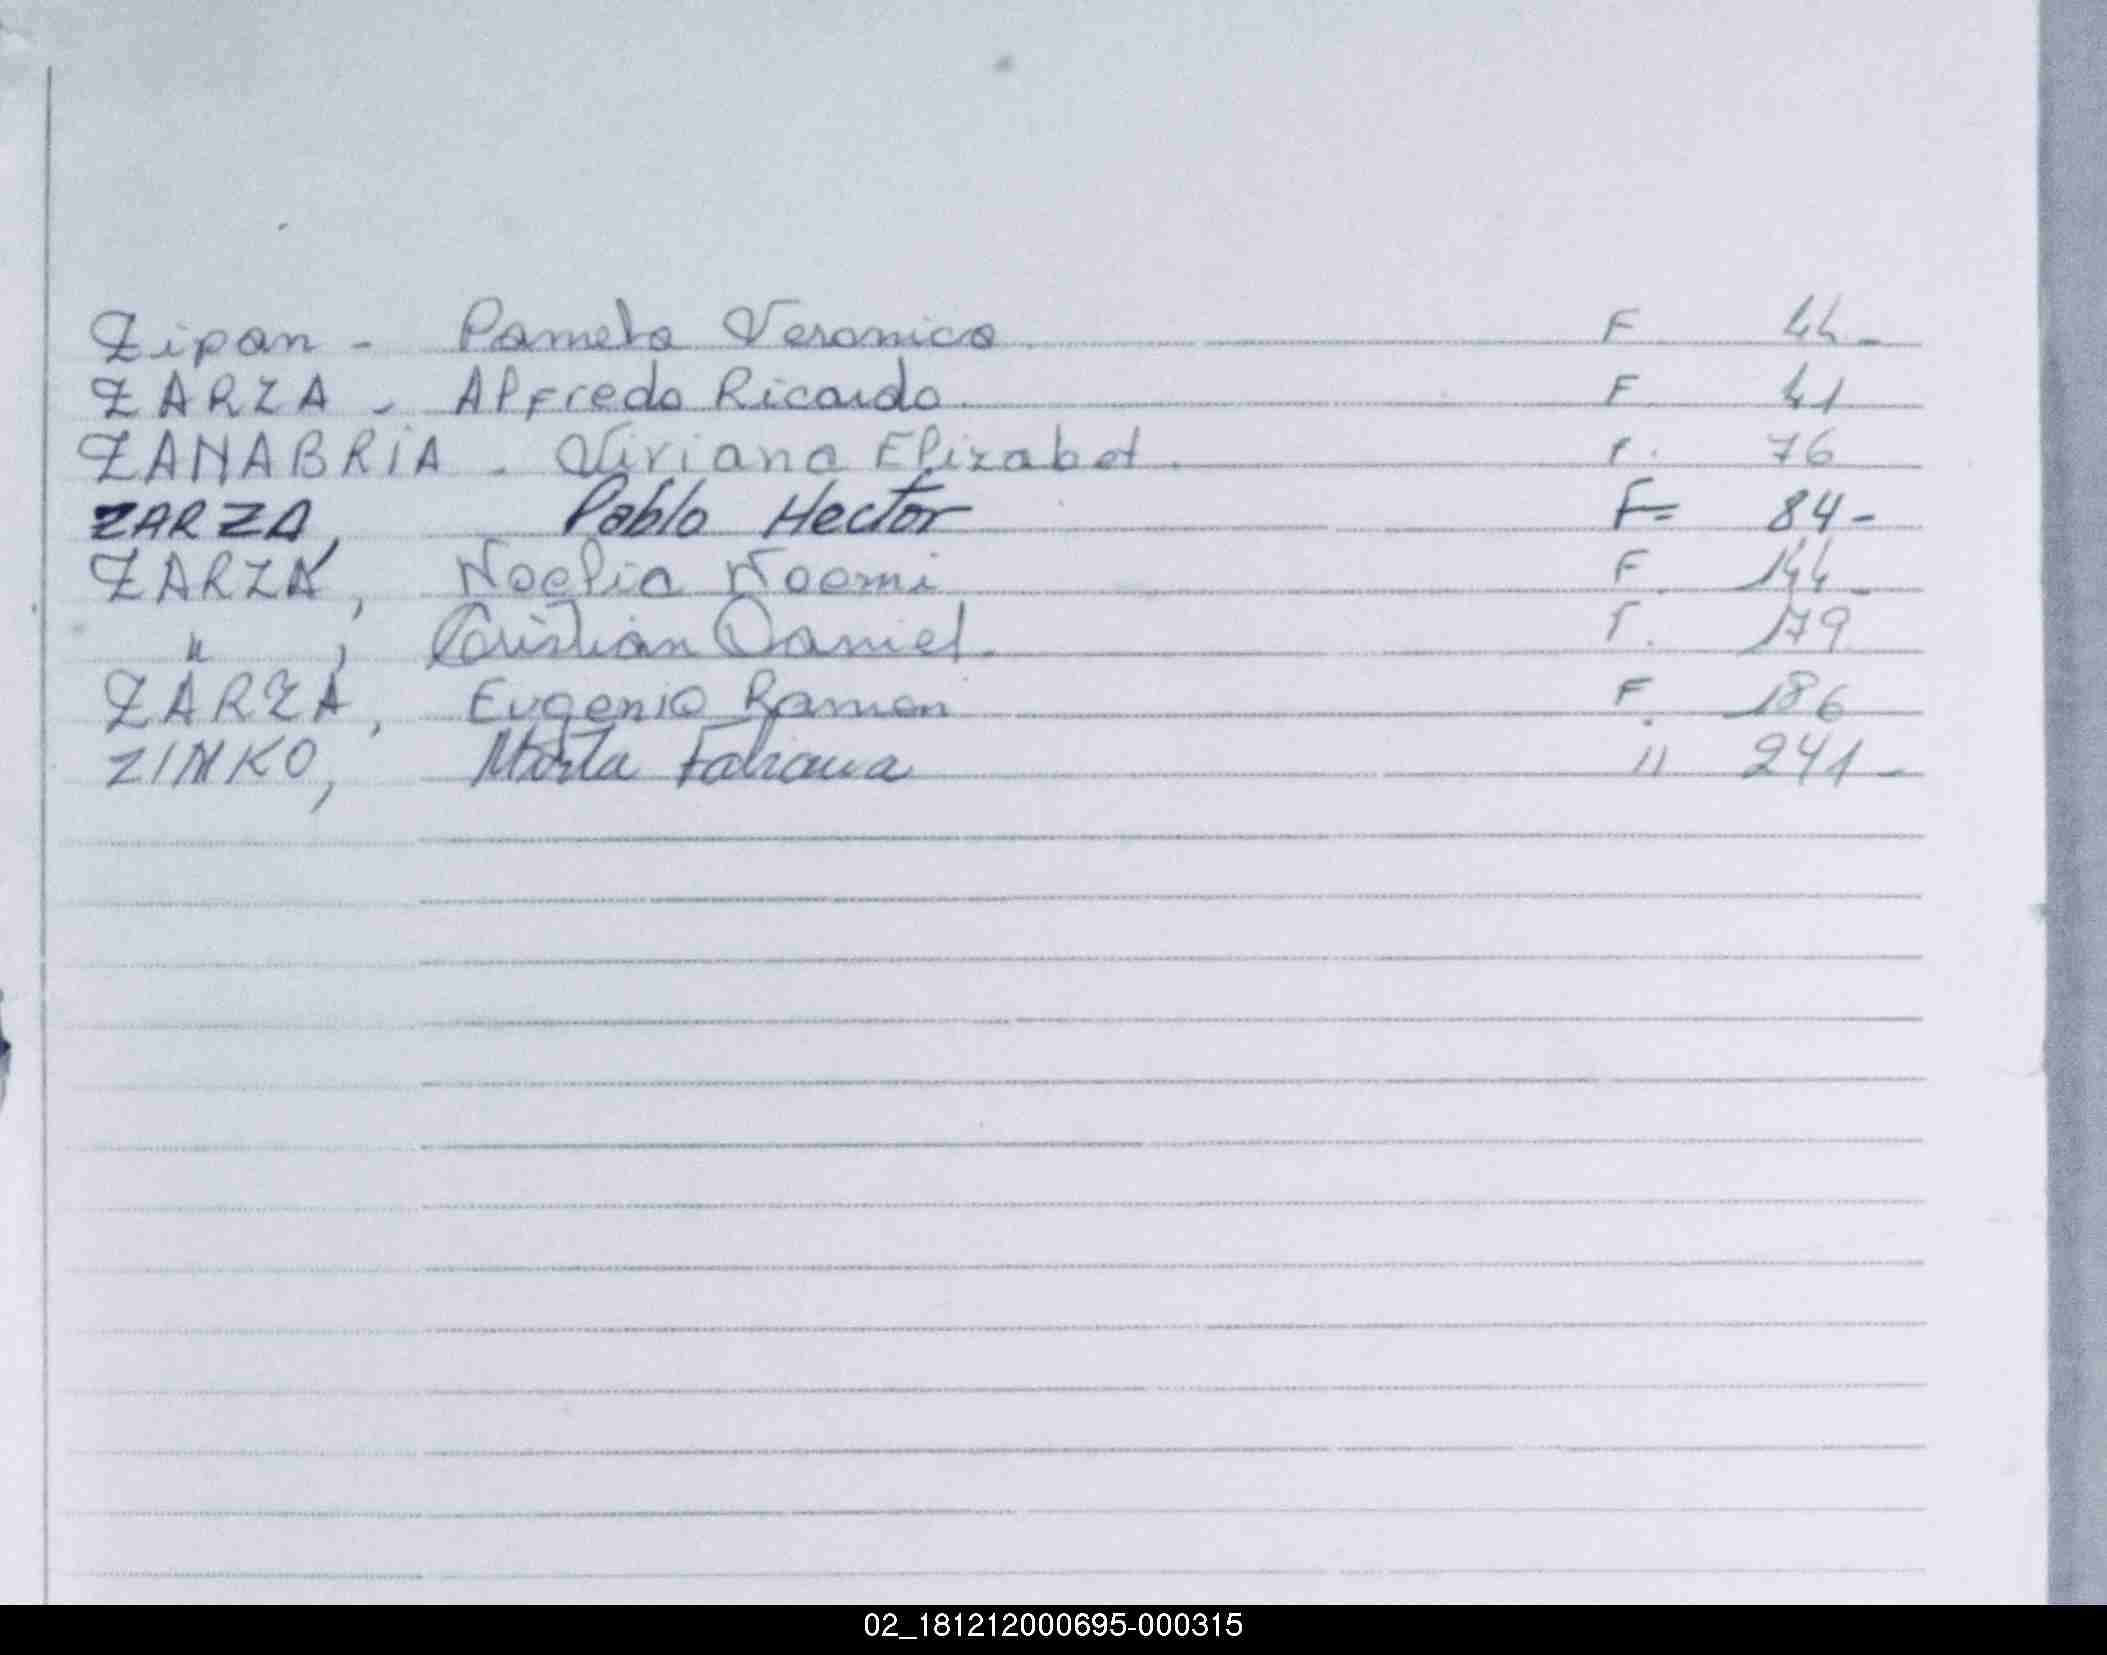 Zipan - Pamela Veronica F 44-
ZARZA - Alfredo Ricardo F 41
ZANABRIA - Viriana Elizabet. F. 76
ZARZA, Pablo Hector F= 84-
ZARZA, Noelia Noemi F. 144-
" , Cristian Daniel. F. 179
ZARZA, Eugenio Ramon F. 186
ZINKO, Mirta Fabiana " 241-
02_181212000695-000315